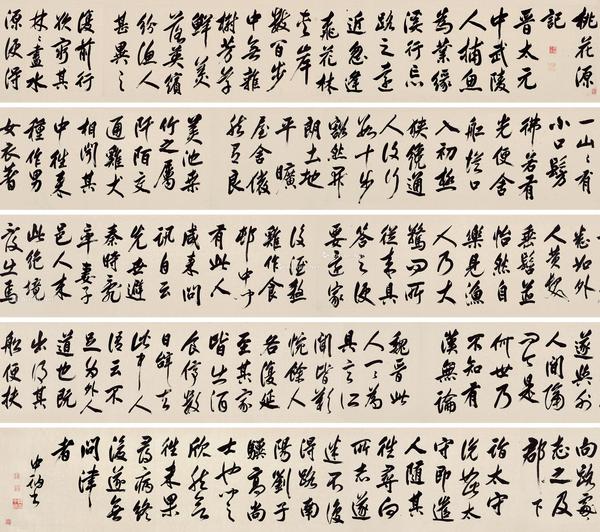 桃花源
記
晉太元
中武陵
人捕魚
為業緣
溪行忘
路之遠
近忽逢
桃花林
夾岸
數百步
中無雜
樹芳草
鮮美
落英繽
紛漁人
甚異之
復前行
欲窮其
林盡水
源便得
一山山有
小口髣
彿若有
光便舍
船從口
入初極
狹纔通
人復行
數十步
豁然開
朗土地
平曠
屋舍儼
然有良
美池桑
竹之屬
阡陌交
通雞犬
相聞其
中往來
種作男
女衣著
悉如外
人黃髮
垂髫並
怡然自
樂見漁
人乃大
驚問所
從來具
答之便
要還家
設酒殺
雞作食
邨中聞
有此人
咸來問
訊自云
先世避
秦時亂
率妻子
邑人來
此絕境
復出焉
遂與外
人間隔
問今是
何世乃
不知有
漢無論
魏晉此
人一一為
具言之
聞皆歎
惋餘人
各復延
至其家
皆出酒
食停數
日辭去
此中人
語云不
足為外人
道也既
出得其
船便扶
向路處處
志之及
郡下
詣太守
說此太
守即遣
人隨其
往尋向
所志遂
迷不復
得路南
陽劉子
驥高尚
士也聞之
欣然
往未果
尋病終
後遂無
問津
者